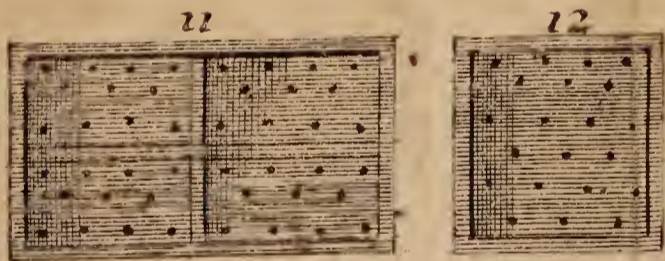 11 12